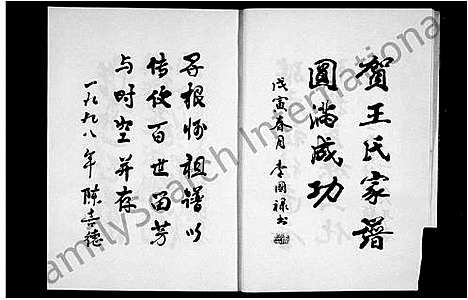 贺王氏家谱
圆满成功
戊寅春月 李国禄书
寻根怀祖谱以
传世百世留芳
与时空并存
一九九八年 陈喜德
FamilySearch International